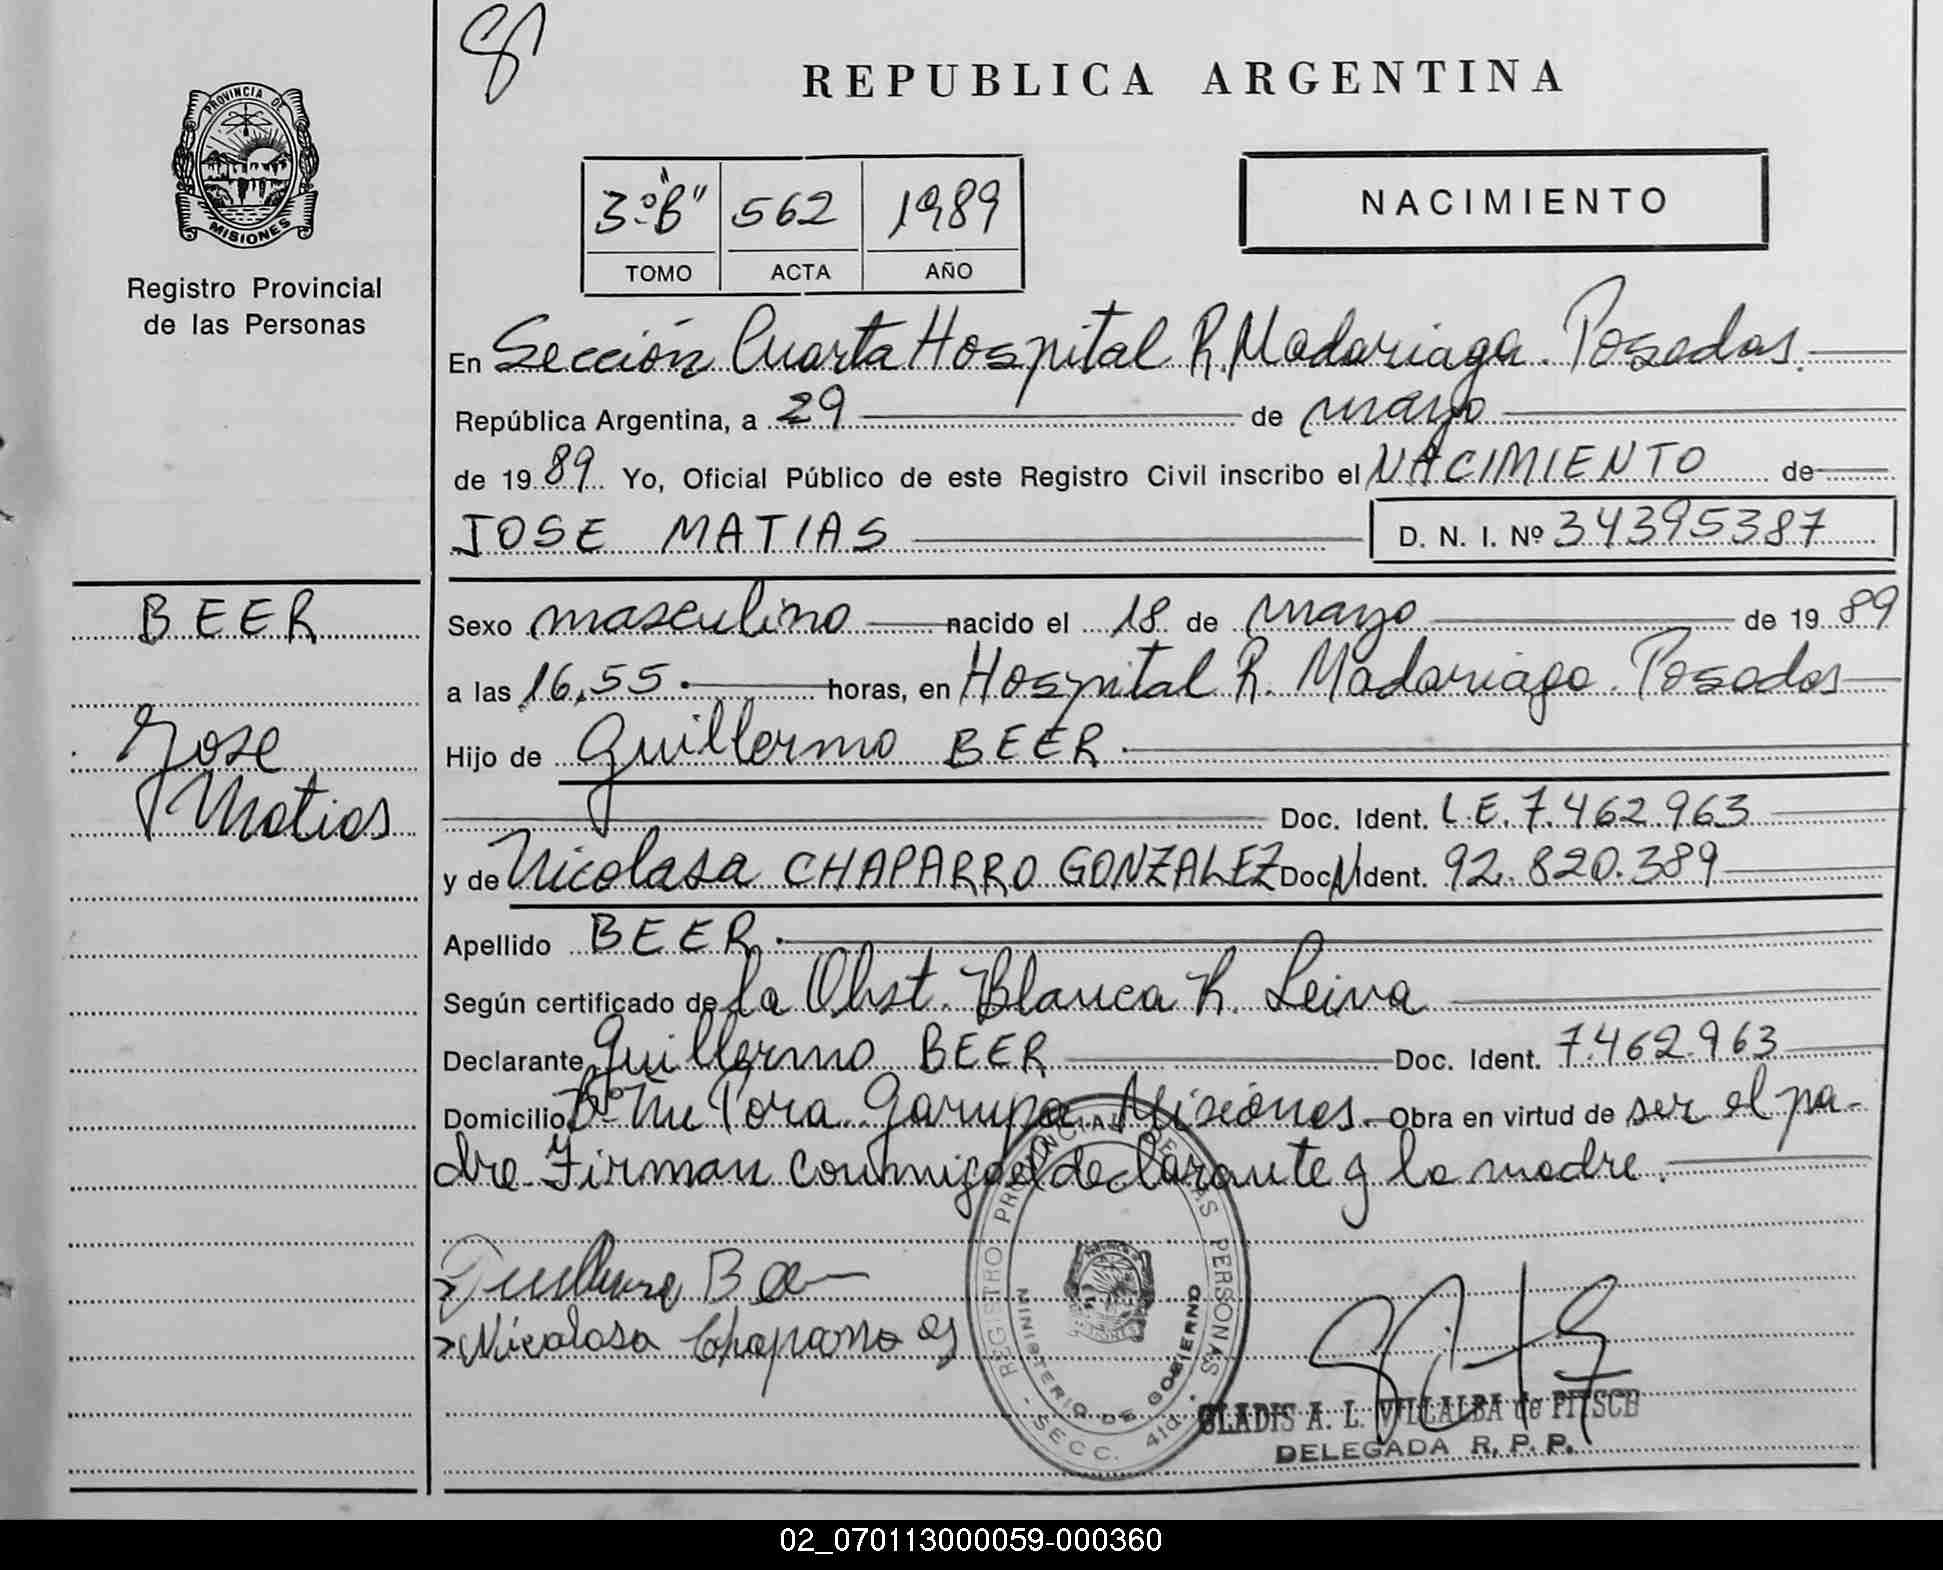 8
REPUBLICA ARGENTINA
PROVINCIA DE
MISIONES
Registro Provincial
de las Personas
3º "B" 562 1989
TOMO ACTA AÑO
NACIMIENTO
En Sección Cuarta Hospital R. Madariaga. Posadas.
República Argentina, a 29 de mayo
de 1989 Yo, Oficial Público de este Registro Civil inscribo el NACIMIENTO de
JOSE MATIAS D. N. I. Nº 34395387
BEER
Jose
Matias
Sexo masculino nacido el 18 de mayo de 1989
a las 16,55. horas, en Hospital R. Madariaga. Posadas
Hijo de Guillermo BEER.
Doc. Ident. L.E. 7.462.963
y de Nicolasa CHAPARRO GONZALEZ Doc. Ident. 92.820.389
Apellido BEER.
Según certificado de la Obst. Blanca R. Leiva
Declarante Guillermo BEER Doc. Ident. 7.462.963
Domicilio Bº Ñu Pora Garupa Misiones. Obra en virtud de ser el pa-
dre. Firman conmigo el declarante y la madre.
Guillermo Beer
Nicolasa Chaparro G
REGISTRO PROVINCIAL DE LAS PERSONAS
MINISTERIO DE GOBIERNO
- SECC. 4ta. -
GLADIS A. L. VILLALBA de PITSCH
DELEGADA R. P. P.
02_070113000059-000360